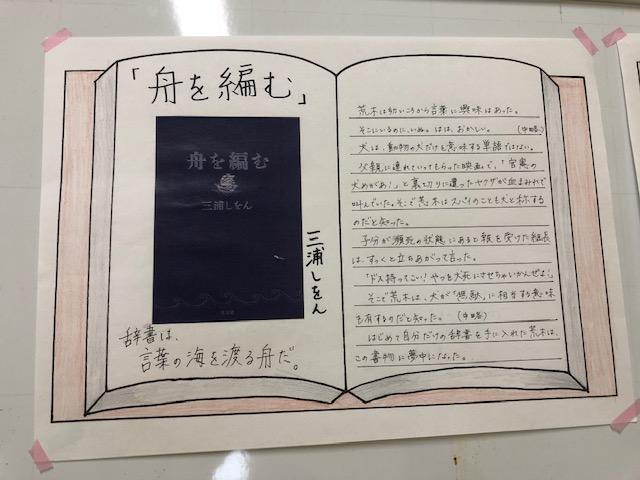 「舟を編む」
舟を編む
三浦しをん
三浦しをん
辞書は、
言葉の海を渡る舟だ。
荒木は幼いころから言葉に興味はあった。
そこにいるのに、いぬ。はは、おかしい。 (中略)
犬は、動物の犬だけを意味する単語ではない。
父親に連れていってもらった映画で、「官憲の
犬めがあ!」と裏切りに遭ったヤクザが血まみれで
叫んでいた。そこで荒木はスパイのことも犬と称する
のだと知った。
子分が瀕死の状態にあると報を受けた組長
は、すっくと立ちあがって言った。
「ドス持ってこい!やつを犬死にさせちゃいかんぜよ!」
そこで荒木は、犬が「無駄」に相当する意味
も有するのだと知った。 (中略)
はじめて自分だけの辞書を手に入れた荒木は、
この書物に夢中になった。